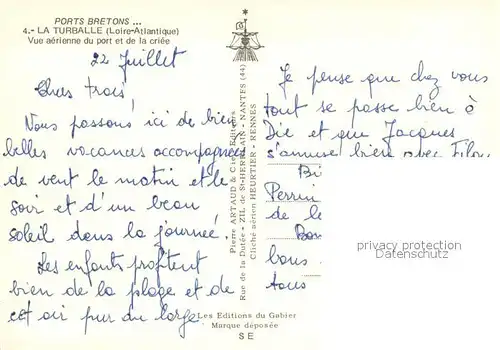 PORTS BRETONS ...
4.- LA TURBALLE (Loire-Atlantique)
Vue aérienne du port et de la criée
22 Juillet
Chers trois,
Nous passons ici de bien
belles vacances accompagnées
de vent le matin et le
soir et d'un beau
soleil dans la journée.
Les enfants profitent
bien de la plage et de
cet air pur du large.
Pierre ARTAUD & Cie - Editeurs
Rue de la Dutée - ZIL de St-HERBLAIN - NANTES (44)
Cliché aérien HEURTIER - RENNES
Les Editions du Gabier
Marque déposée
SE
Je pense que chez vous
tout se passe bien à
Die et que Jacques
s'amuse bien avec
Bi
Perrin
de le
Bon
bons
tous
privacy protection
Datenschutz